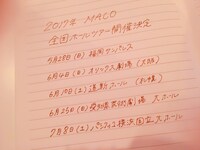 2017年 MACO
全国ホールツアー開催決定
5月28日(日) 福岡サンパレス
6月4日(日) オリックス劇場 (大阪)
6月10日(土) 道新ホール (札幌)
6月25日(日) 愛知県芸術劇場 大ホール
7月8日(土) パシフィコ横浜国立大ホール